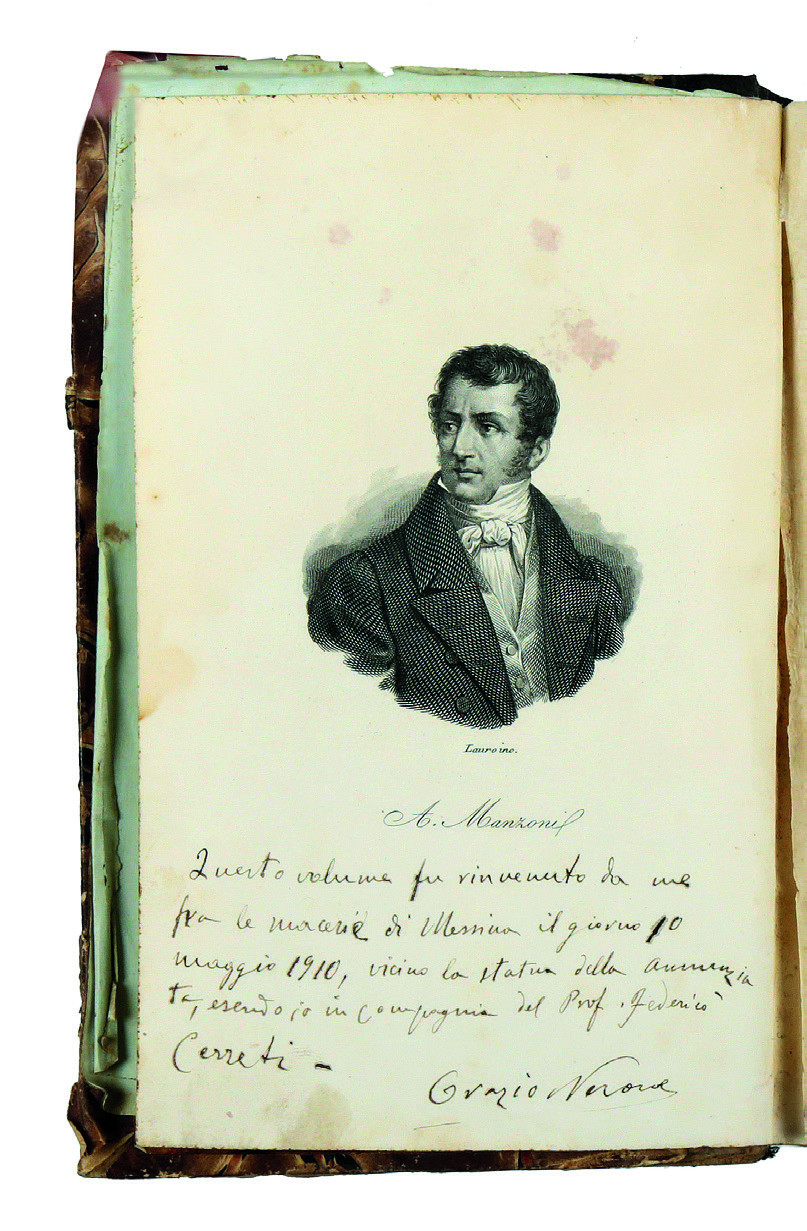 Lauro inc.
A. Manzoni
Questo volume fu rinvenuto da me
fra le macerie di Messina il giorno 10
maggio 1910, vicino la statua della Annunzia
ta, esendo io in compagnia del Prof. Federico
Cerreti –
Orazio Nerone